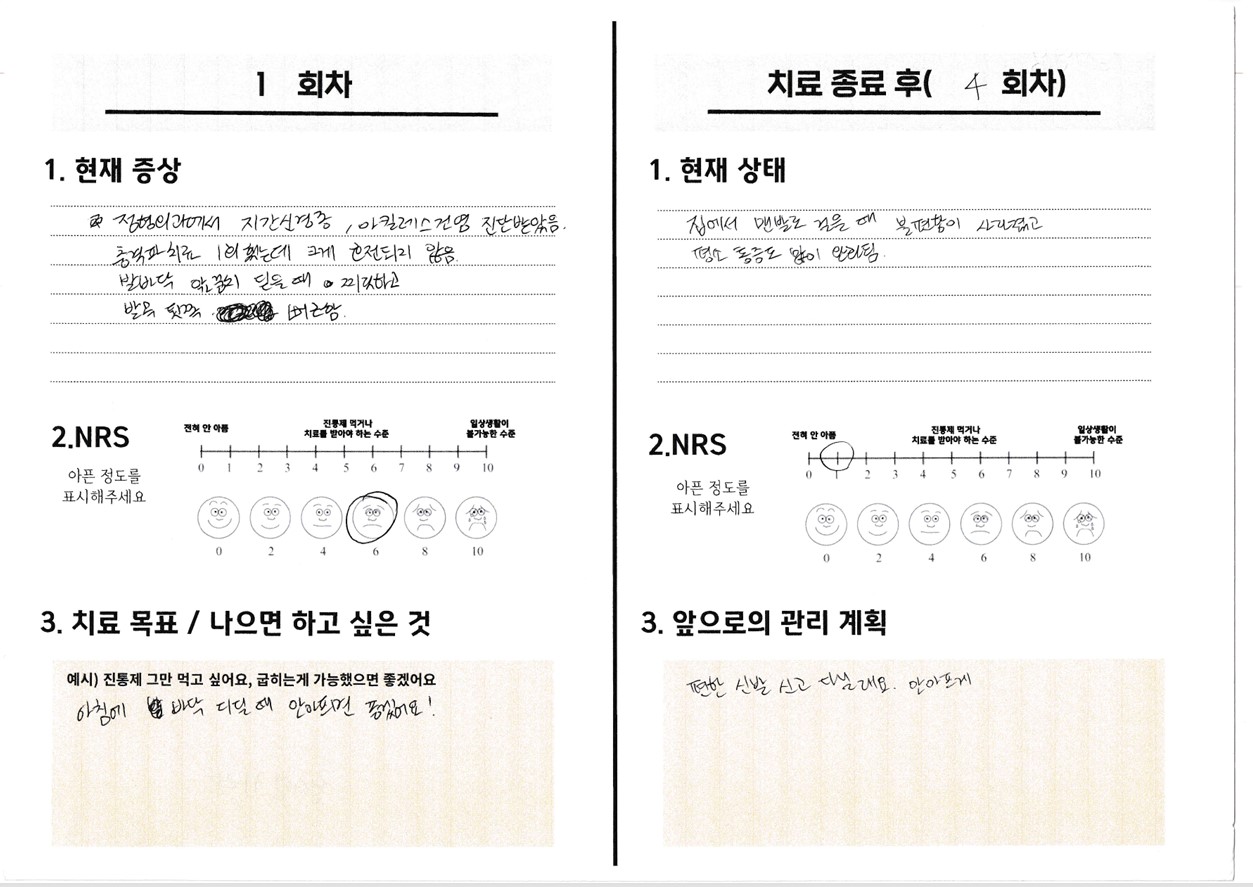 1 회차
1. 현재 증상
정형외과에서 지간신경종, 아킬레스건염 진단받았음.
충격파치료 1회 했는데 크게 호전되지 않음.
발바닥 앞꿈치 딛을 때 찌릿하고
발목 뒷쪽 뻐근함.
2.NRS
아픈 정도를
표시해주세요
전혀 안 아픔
진통제 먹거나
치료를 받아야 하는 수준
일상생활이
불가능한 수준
0 1 2 3 4 5 6 7 8 9 10
0 2 4 6 8 10
3. 치료 목표 / 나으면 하고 싶은 것
예시) 진통제 그만 먹고 싶어요, 굽히는게 가능했으면 좋겠어요
아침에 바닥 디딜 때 안아프면 좋겠어요!
치료 종료 후( 4 회차)
1. 현재 상태
집에서 맨발로 걸을 때 불편함이 사라졌고
평소 통증도 많이 완화됨.
2.NRS
아픈 정도를
표시해주세요
전혀 안 아픔
진통제 먹거나
치료를 받아야 하는 수준
일상생활이
불가능한 수준
0 1 2 3 4 5 6 7 8 9 10
0 2 4 6 8 10
3. 앞으로의 관리 계획
편한 신발 신고 다닐래요. 안아프게